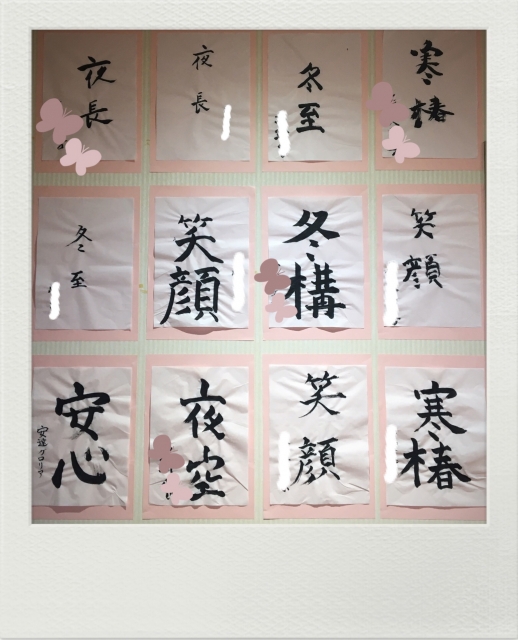 夜長
夜長
冬至
寒椿
冬至
笑顔
冬構
笑顔
安心
夜空
笑顔
寒椿